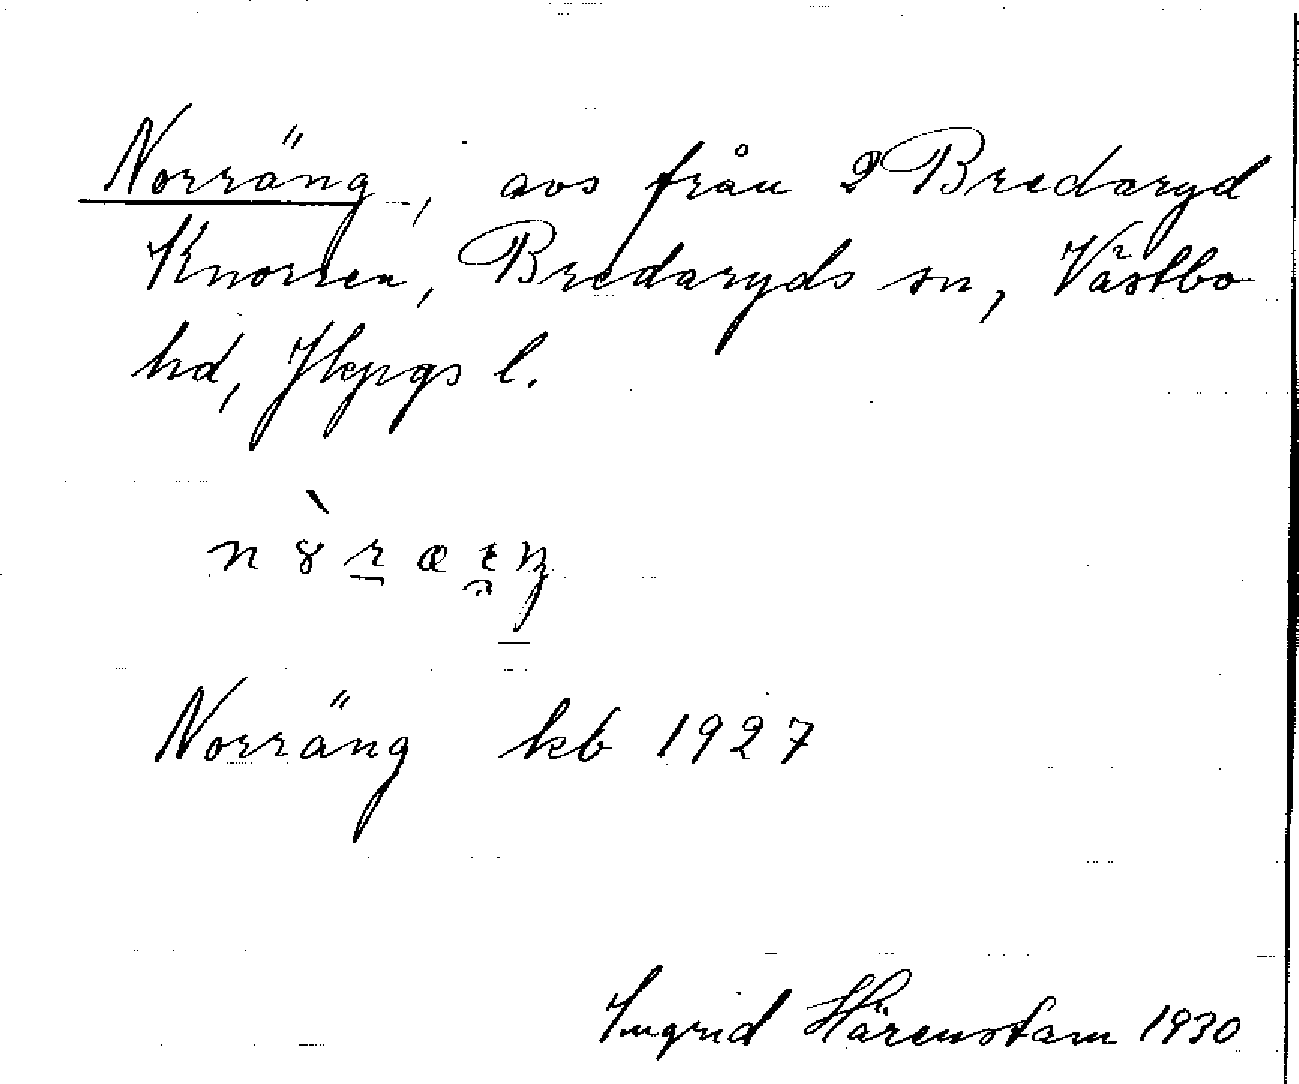 Norräng, avs från 2 Bredaryd
Knorren, Bredaryds sn, Västbo
hd, Jkpgs l.
Norräng kb 1927
Ingrid Härenstam 1930